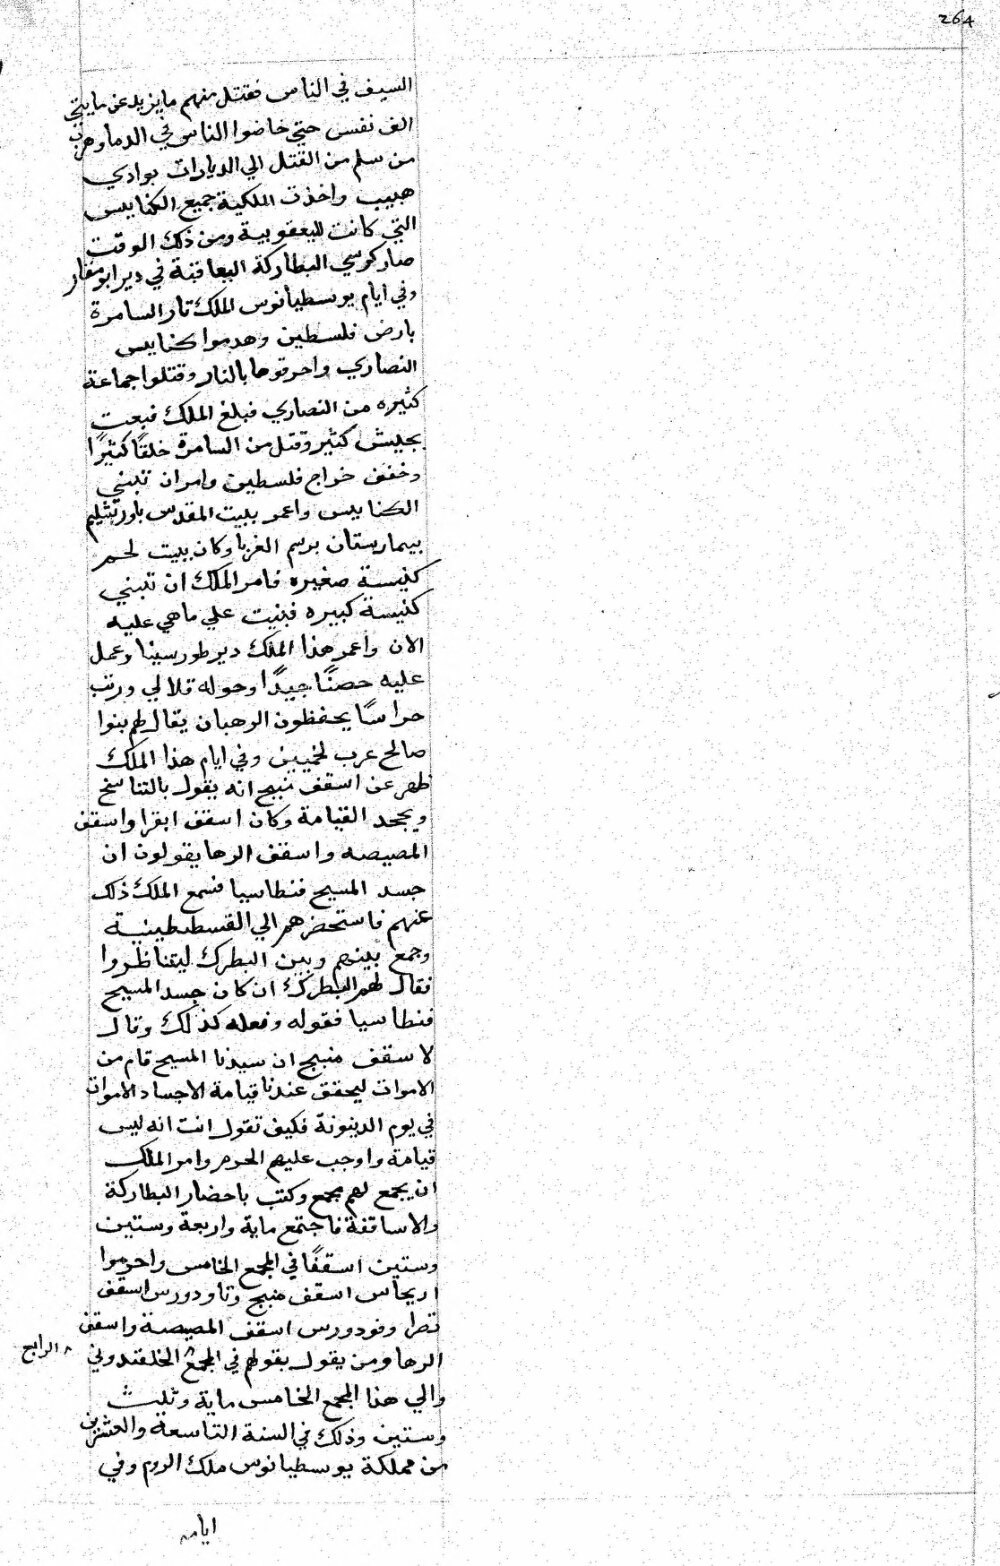 264
السيف في الناس فقتل منهم ما يزيد عن مايتي
الف نفس حتي خاضوا الناس في الدما وهرب
من سلم من القتل الي الديارات بوادي
هبيب واخذت الملكية جميع الكنايس
التي كانت لليعقوبية ومن ذلك الوقت
صار كرسي البطاركة اليعاقبة في دير ابو مقار
وفي ايام يوسطيانوس الملك ثار السامرة
بارض فلسطين وهدموا كنايس
النصاري واحرقوها بالنار وقتلوا جماعة
كثيره من النصاري فبلغ الملك فبعت
بجيش كثير وقتل من السامرة خلقًا كثيرًا
وخفف خراج فلسطين وامر ان تبني
الكنايس واعمر ببيت المقدس باورشليم
بيمارستان برسم الغربا وكان ببيت لحم
كنيسة صغيره فامر الملك ان تبني
كنيسة كبيره فبنيت علي ما هي عليه
الان واعمر هذا الملك دير طور سينا وعمل
عليه حصنًا جيدًا وحوله قلالي ورتب
حراسًا يحفظون الرهبان يقال لهم بنوا
صالح عرب لخميين وفي ايام هذا الملك
ظهر عن اسقف منبج انه يقول بالتناسخ
ويجحد القيامة وكان اسقف انقرا واسقف
المصيصه واسقف الرها يقولون ان
جسد المسيح فنطاسيا فسمع الملك ذلك
عنهم فاستحضرهم الي القسطنطينية
وجمع بينهم وبين البطرك ليتناظروا
فقال لهم البطرك ان كان جسد المسيح
فنطاسيا فقوله وفعله كذلك وقال
لاسقف منبج ان سيدنا المسيح قام من
الاموات ليحقق عندنا قيامة الاجساد الاموات
في يوم الدينونة فكيف تقول انت انه ليس
قيامة واوجب عليهم الحرم وامر الملك
ان يجمع لهم مجمع وكتب باحضار البطاركة
والاساقفة فاجتمع ماية واربعة وستين
وستين اسقفًا في المجمع الخامس واحرموا
اريجاس اسقف منبج وتاودورس اسقف
نقرا وفودورس اسقف المصيصة واسقف
الرها ومن يقول بقولهم في المجمع الخلقندوني
الرابع
والي هذا المجمع الخامس ماية وثلث
وستين وذلك في السنة التاسعة والعشرين
من مملكة يوسطيانوس ملك الروم وفي
ايامه